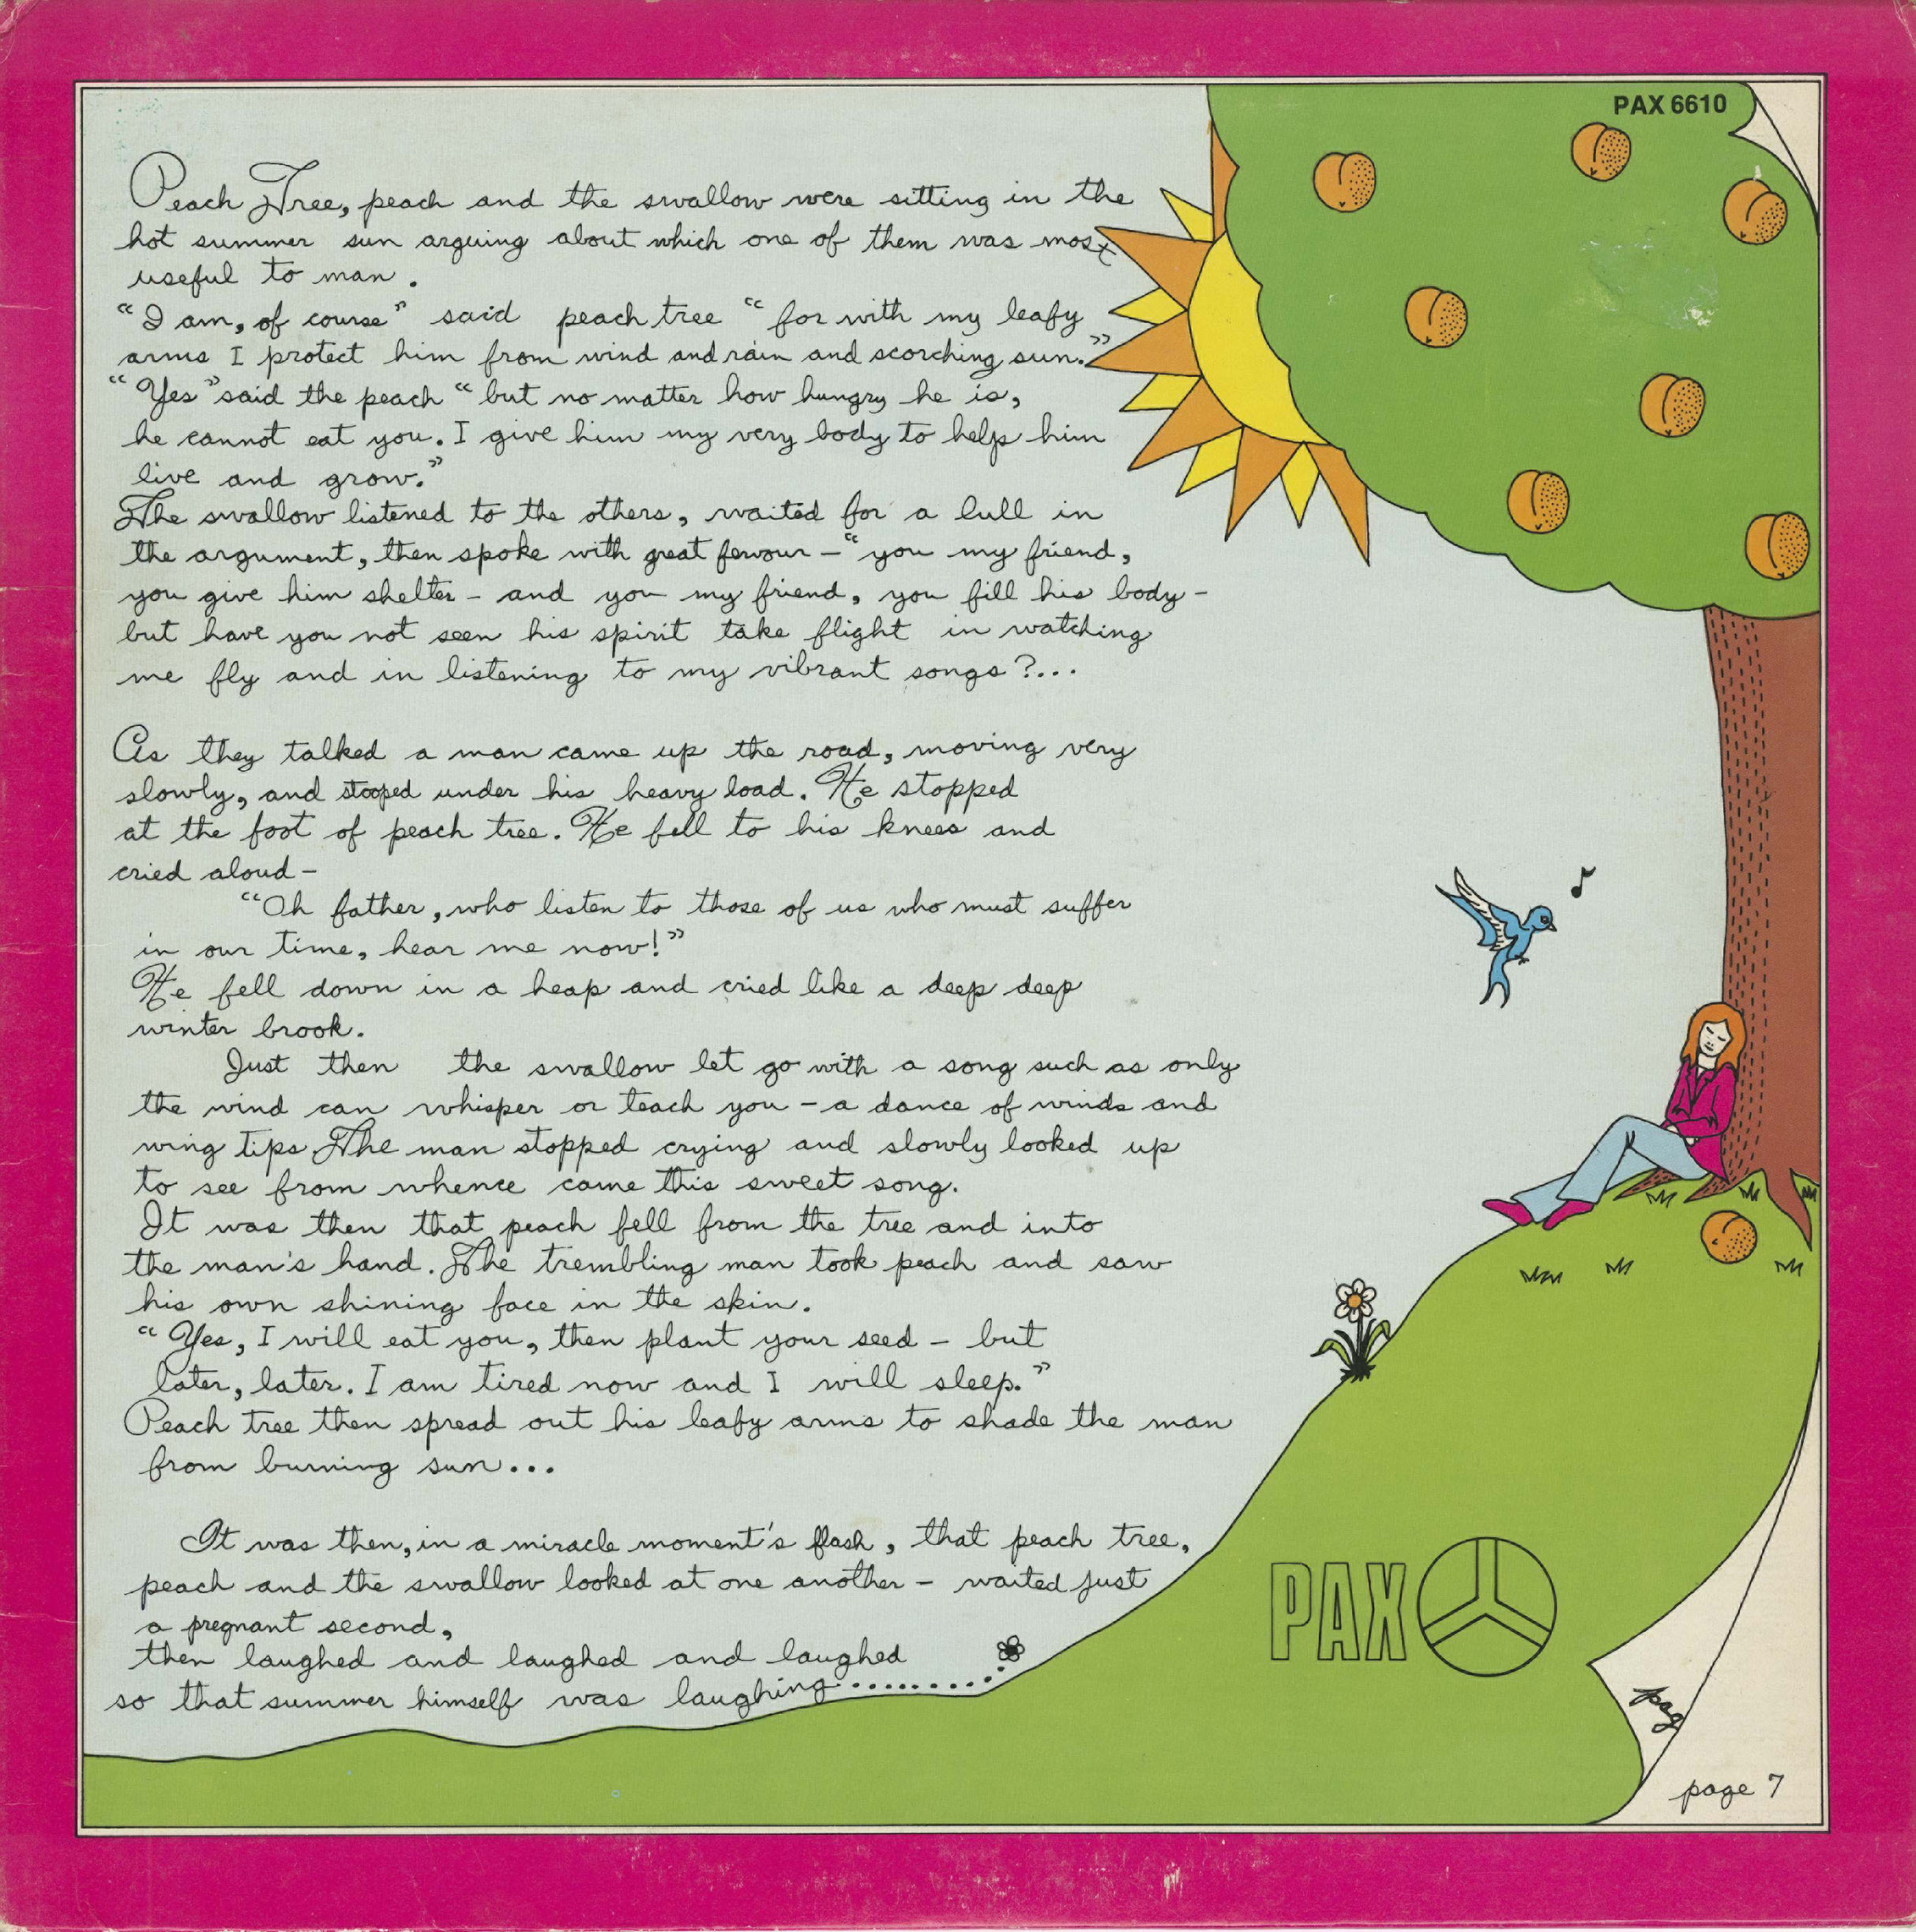 PAX 6610
Peach Tree, peach and the swallow were sitting in the
hot summer sun arguing about which one of them was most
useful to man.
"I am, of course" said peach tree "for with my leafy
arms I protect him from wind and rain and scorching sun."
"Yes" said the peach "but no matter how hungry he is,
he cannot eat you. I give him my very body to help him
live and grow."
The swallow listened to the others, waited for a lull in
the argument, then spoke with great fervour - "you my friend,
you give him shelter - and you my friend, you fill his body -
but have you not seen his spirit take flight in watching
me fly and in listening to my vibrant songs?...
As they talked a man came up the road, moving very
slowly, and stooped under his heavy load. He stopped
at the foot of peach tree. He fell to his knees and
cried aloud -
"Oh father, who listen to those of us who must suffer
in our time, hear me now!"
He fell down in a heap and cried like a deep deep
winter brook.
Just then the swallow let go with a song such as only
the wind can whisper or teach you - a dance of winds and
wing tips. The man stopped crying and slowly looked up
to see from whence came this sweet song.
It was then that peach fell from the tree and into
the man's hand. The trembling man took peach and saw
his own shining face in the skin.
"Yes, I will eat you, then plant your seed - but
later, later. I am tired now and I will sleep."
Peach tree then spread out his leafy arms to shade the man
from burning sun...
It was then, in a miracle moment's flash, that peach tree,
peach and the swallow looked at one another - waited just
a pregnant second,
then laughed and laughed and laughed
so that summer himself was laughing..........
PAX
pag
page 7